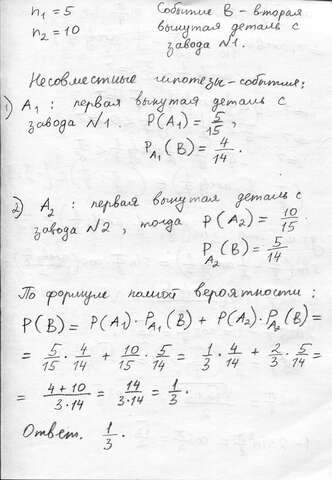 n₁ = 5 Событие B - вторая
n₂ = 10 вынутая деталь с
завода N1.
Несовместные гипотезы-события:
1) A₁ : первая вынутая деталь с
завода N1. P(A₁) = 5/15,
P_A₁(B) = 4/14.
2) A₂ : первая вынутая деталь с
завода N2, тогда P(A₂) = 10/15.
P_A₂(B) = 5/14
По формуле полной вероятности:
P(B) = P(A₁)·P_A₁(B) + P(A₂)·P_A₂(B) =
= 5/15 · 4/14 + 10/15 · 5/14 = 1/3 · 4/14 + 2/3 · 5/14 =
= (4+10)/(3·14) = 14/(3·14) = 1/3.
Ответ. 1/3.